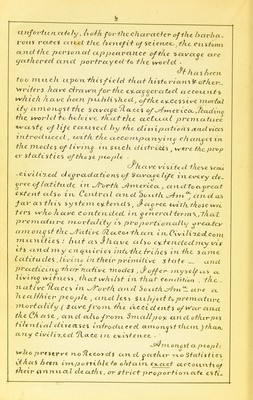 8
unfortunately, both for the character of the barba-
rous races and the benefit of science, the customs
and the personal appearance of the savage are
gathered and portrayed to the world.
It has been
too much upon this field that historians & other
writers have drawn for the exaggerated accounts
which have been published, of the excessive mortal
ity amongst the savage Races of America, leading
the world to believe that the actual premature
waste of life caused by the dissipations and vices
introduced, with the accompanying changes in
the modes of living in such districts, were the prop
er statistics of those people.
I have visited these semi
civilized degradations of savage life in every de-
gree of latitude in North America, and to a great
extent also in Central and South Am.ca, and as
far as this system extends, I agree with those wri
ters who have contended in general terms, that
premature mortality is proportionally greater
amongst the Native Races than in Civilized com
munities: but as I have also extended my vis
its and my enquiries into the tribes in the same
latitudes, living in their primitive state — and
practicing their native modes, I offer myself as a
living witness, that whilst in that condition, the
native Races in North and South Am.ca are a
healthier people, and less subject to premature
mortality (save from the accidents of War and
the Chase, and also from Small pox and other pes
tilential diseases introduced amongst them) than
any civilized Race in existence.
Amongst a people
who preserve no Records and gather no Statistics
it has been impossible to obtain exact accounts of
their annual deaths, or strict proportionate esti-